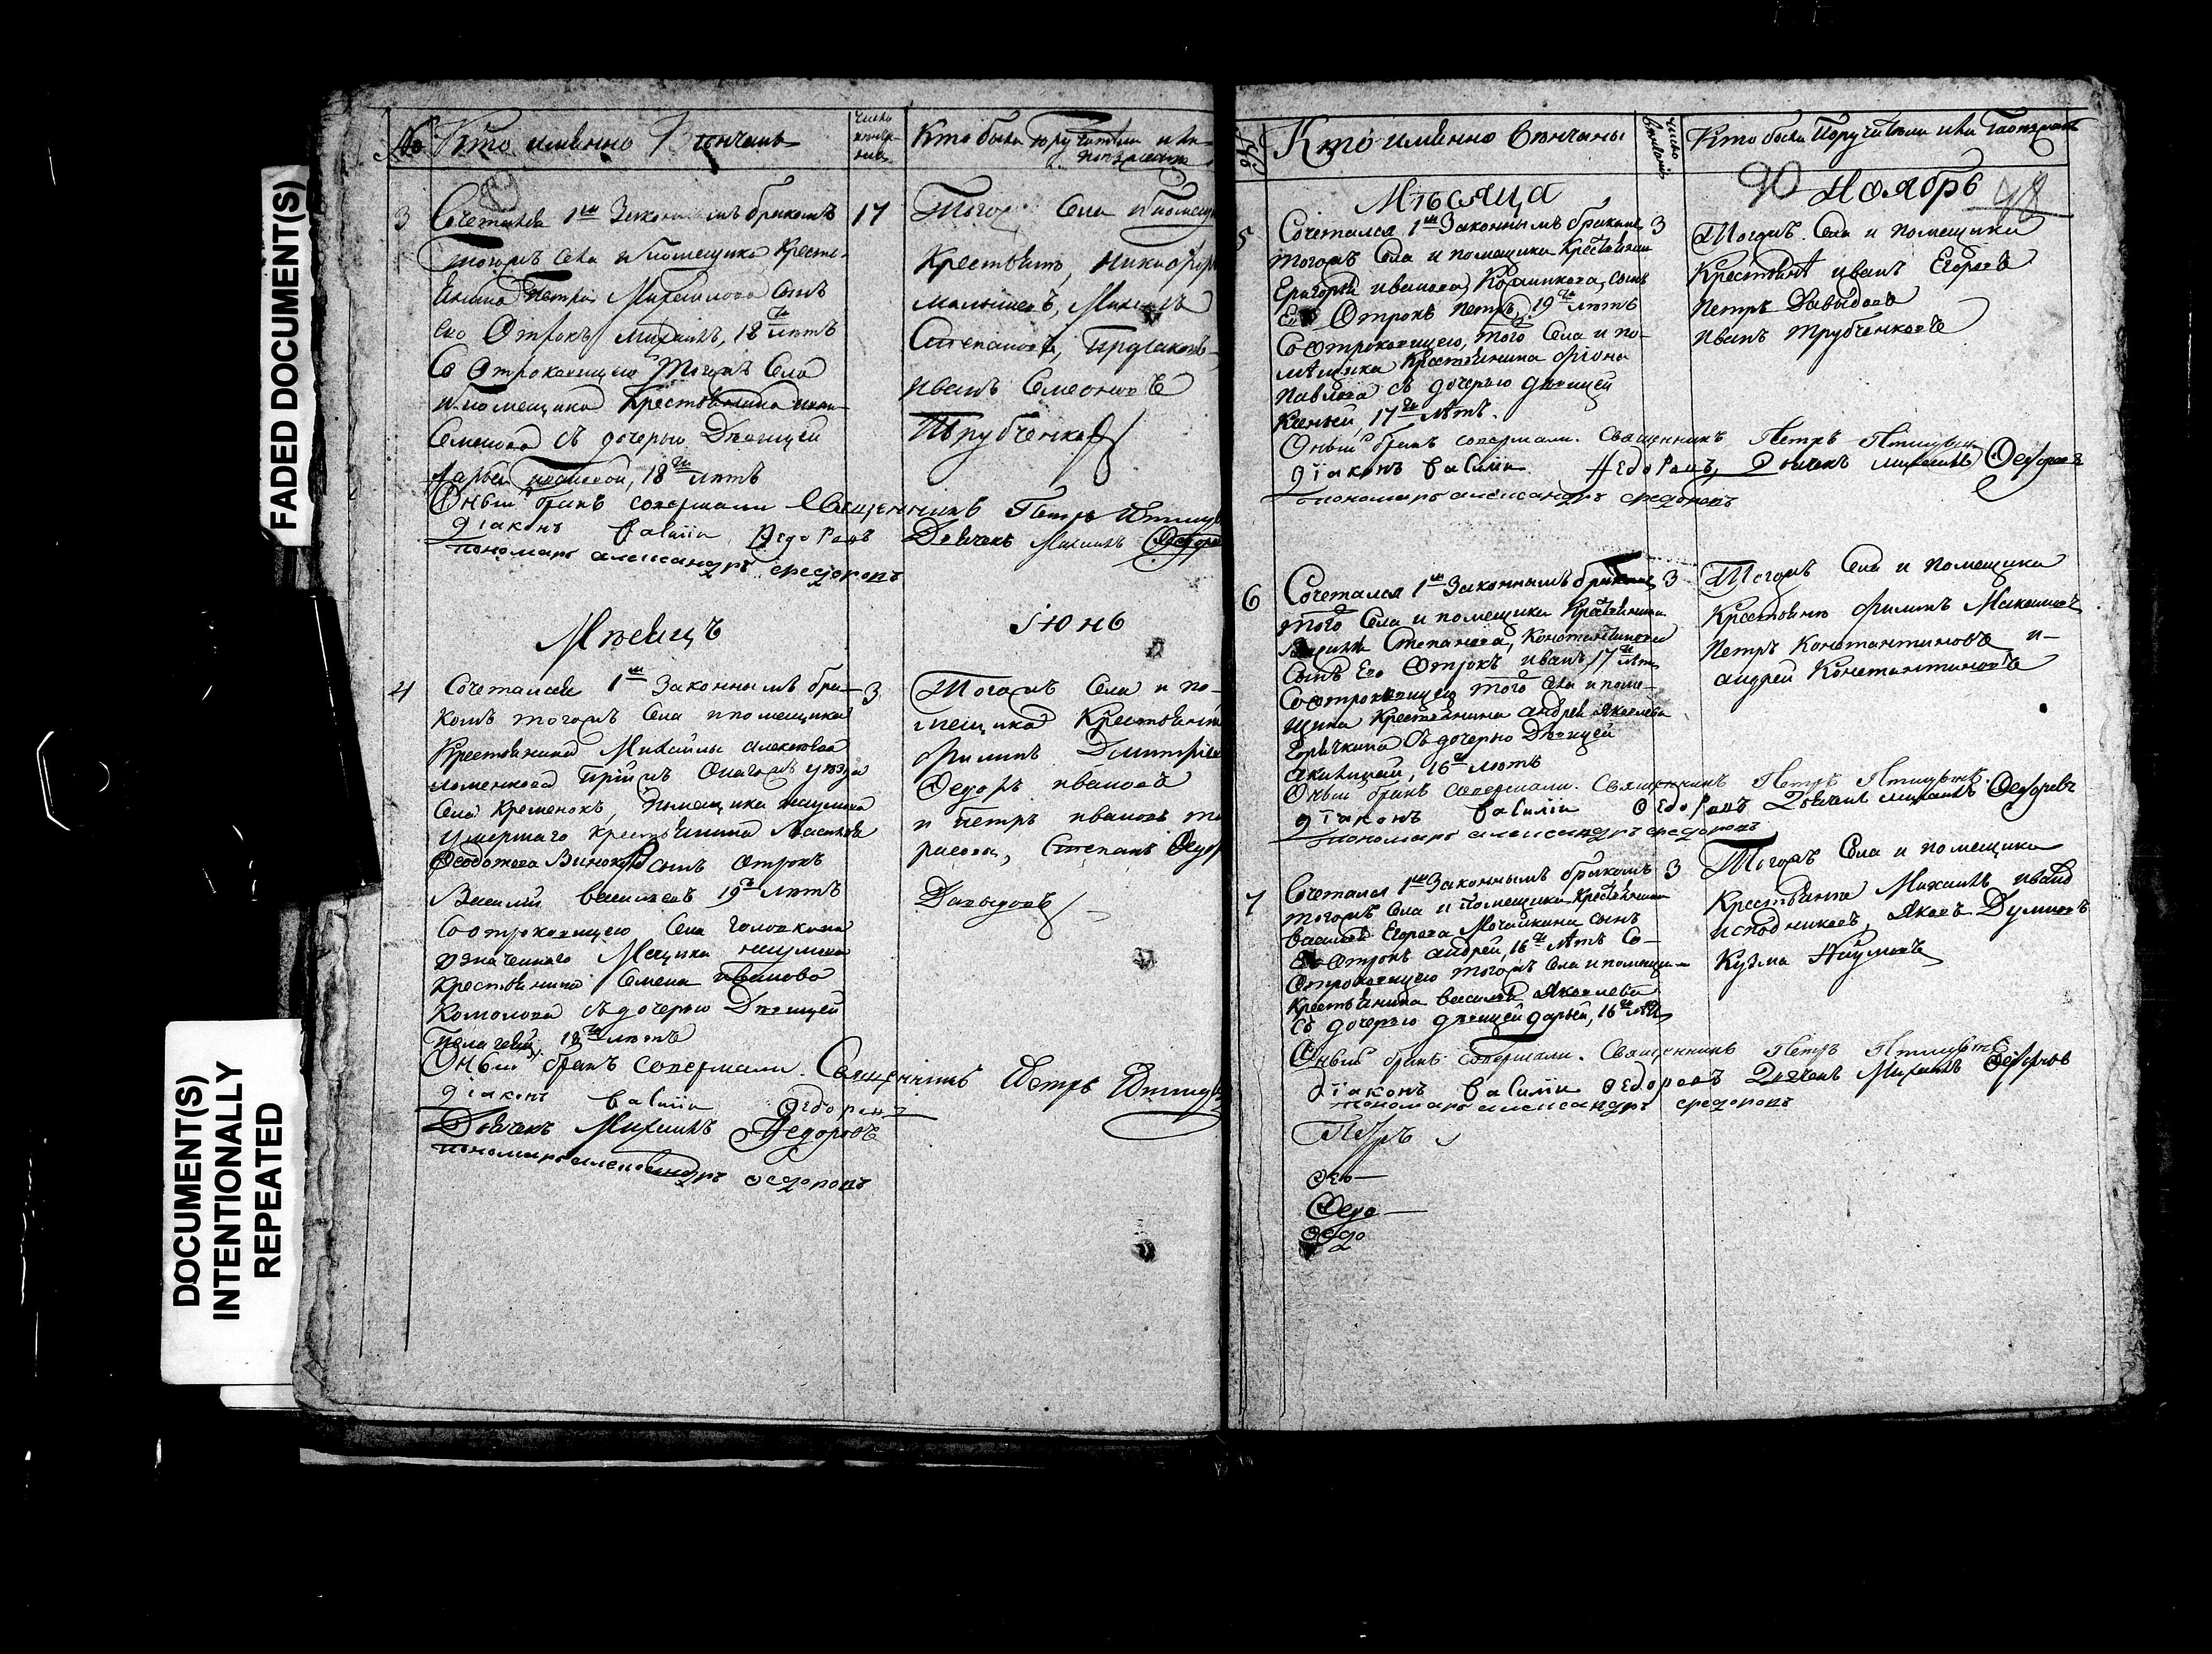 FADED DOCUMENT(S)
DOCUMENT(S)
INTENTIONALLY
REPEATED
№ Кто имянно Венчанъ
число
Кто были поручители
3 Сочетался 1м Законнымъ бракомъ 17
тогожъ села и помещика Кресть-
янина Петра Михайлова сынъ
его Отрокъ Михаилъ, 18ти летъ
Со Отроковицею Тогожъ Села
и помещика Крестьянина
Семенова съ дочерью Девицей
18ти летъ
Оный бракъ совершали Священникъ Петръ
діаконъ Василіи Ѳедоровъ Дьячекъ Михаилъ
пономарь александръ федоровъ
Тогожъ Села и помещ
Крестьяне, Никифоръ
Малышевъ, Михаилъ
Степановъ,
иванъ Семеоновъ
Трубченковъ
Месяцъ
Iюнь
4 Сочетался 1м Законнымъ бра- 3
комъ тогожъ Села и помещика
Крестьянина Михайлы алексеева
уезда
Села Кременокъ, помещика наумова
умершаго крестьянина
сынъ отрокъ
Василій васильевъ 19ть летъ
Соотроковицею Села головкина
означеннаго наумова
Крестьянина Семена иванова
Комолова съ дочерью Девицей
Пелагеей, 18ти летъ
Оный бракъ совершали. Священникъ Петръ
діаконъ Василіи Ѳедоровъ
Дьячекъ Михаилъ Федоровъ
пономарь александръ федоровъ
Тогожъ Села и по-
мещика Крестьяня
филипъ Дмитріе
Федоръ ивановъ
и петръ ивановъ
Степанъ Федор
Давыдовъ
№ Кто имянно Венчаны
число
Кто были Поручители или
Месяца
90 Ноябрь 48
5 Сочетался 1м Законнымъ бракомъ 3
тогожъ Села и помещика Крестьянина
Григорья иванова сынъ
Его Отрокъ Петръ, 19ть летъ
Соотроковицею, того Села и по-
мещика Крестьянина
Павлова съ дочерью девицей
17ти летъ.
Оный бракъ совершали. Священникъ Петръ
діаконъ Василіи Ѳедоровъ, Дьячекъ михаилъ Федоровъ
пономарь александръ федоровъ
Тогожъ Села и помещика
Крестьяня иванъ Егоровъ
петръ Давыдовъ
иванъ трубченковъ
6 Сочетался 1м Законнымъ бракомъ 3
того Села и помещика Крестьянина
Степанова, Константинова
Сынъ Его Отрокъ иванъ, 17ти лет
Соотроковицею того Села и поме-
щика Крестьянина андрея Яковлева
съ дочерью Девицей
16ть летъ
Оный бракъ совершали. Священникъ Петръ
діаконъ Василіи Ѳедоровъ Дьячекъ михаилъ Федоровъ
пономарь александръ федоровъ
Тогожъ Села и помещика
Крестьяня филипъ
петръ Константиновъ и
андрей Константиновъ
7 Сочетался 1м Законнымъ бракомъ 3
тогожъ Села и помещика Крестьянина
Егорова Мочалкина сынъ
Отрокъ андрей, 16ть летъ Со-
Отроковицею тогожъ Села и помещи-
Крестьянина василья Яковлева
Съ дочерью девицей дарьей, 16ть лет
Оный бракъ совершали. Священникъ Петръ
Діаконъ Василіи Ѳедоровъ Дьячекъ Михаилъ Федоровъ
пономарь александръ федоровъ
Тогожъ Села и помещика
Крестьяня Михаилъ иванов
Яковъ
Кузма Наумовъ
Федо